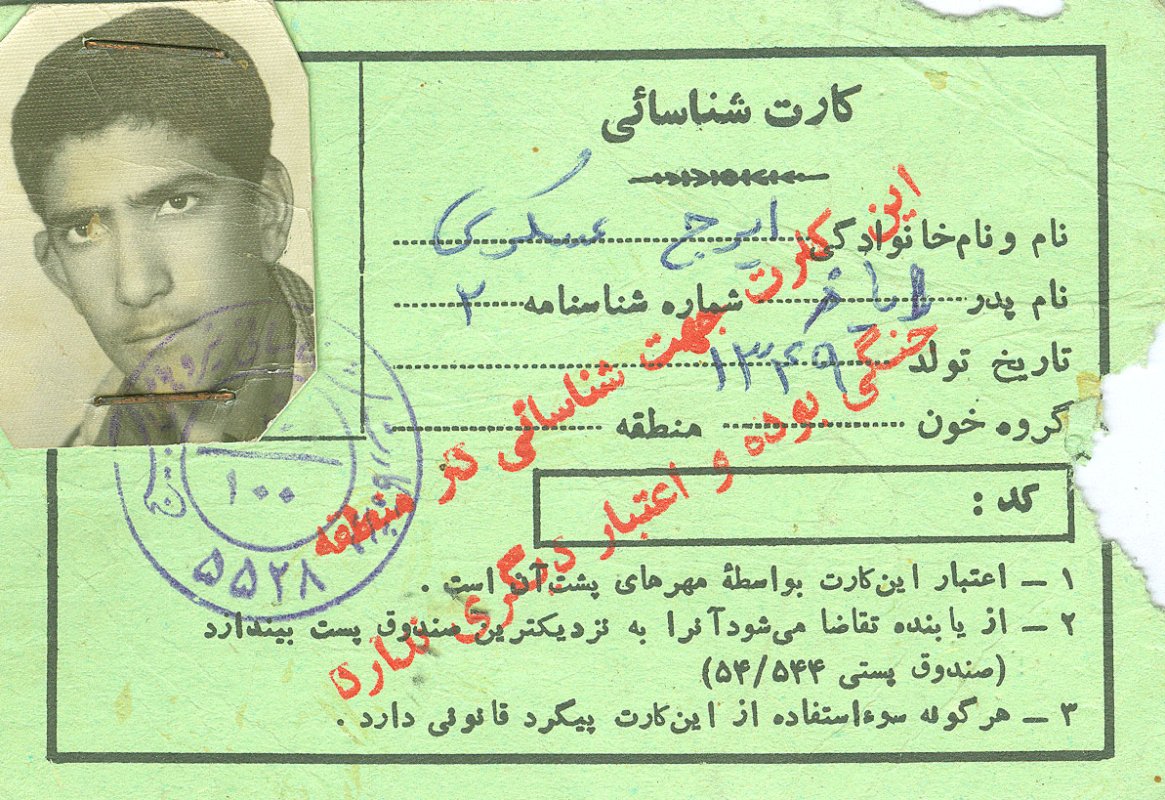 کارت شناسائی
نام و نام‌خانوادگی ایرج عسکری
نام پدر ایاز شماره شناسنامه ۲
تاریخ تولد ۱۳۴۹
گروه خون منطقه
کد :
۱ ـ اعتبار این‌کارت بواسطهٔ مهرهای پشت‌آن است .
۲ ـ از یابنده تقاضا می‌شود‌آنرا به نزدیکترین صندوق پست بیندازد
(صندوق پستی ۵۴/۵۴۴)
۳ ـ هرگونه سوءاستفاده از این‌کارت پیگرد قانونی دارد .
این کارت جهت شناسائی در منطقه
جنگی بوده و اعتبار دیگری ندارد
۱۰۰
۵۵۲۸